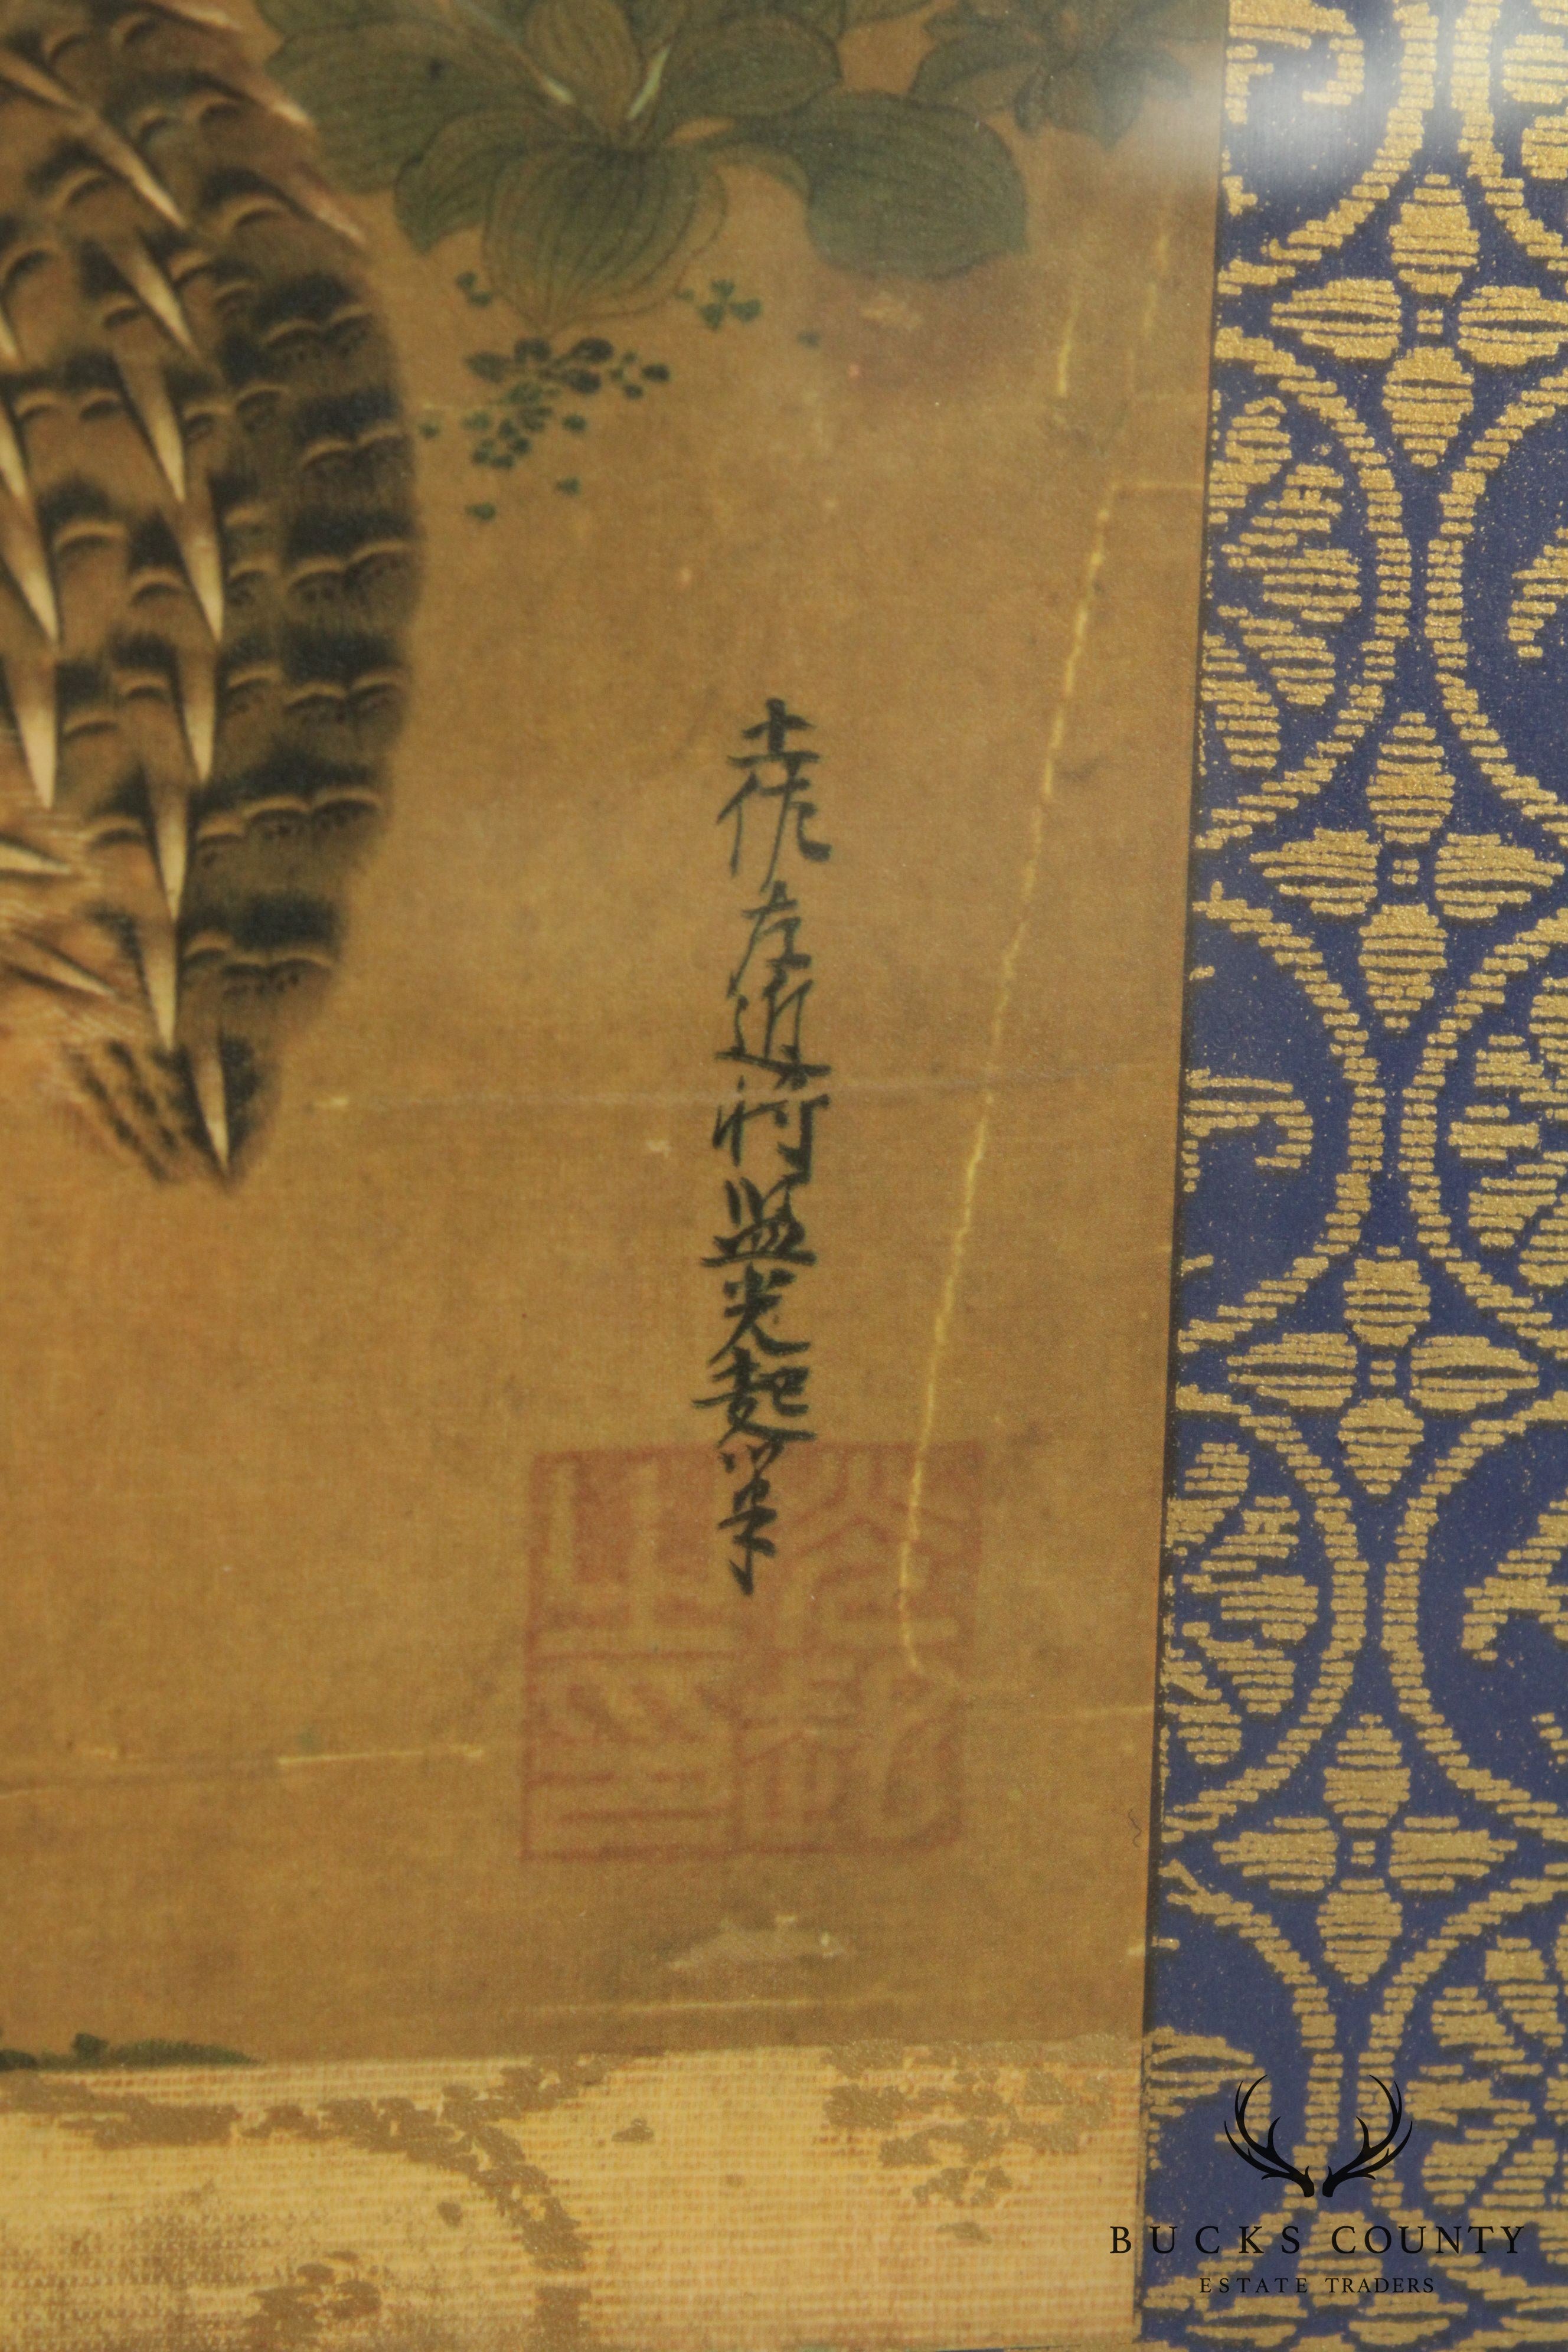 土佐左近将監光起筆
BUCKS COUNTY
ESTATE TRADERS